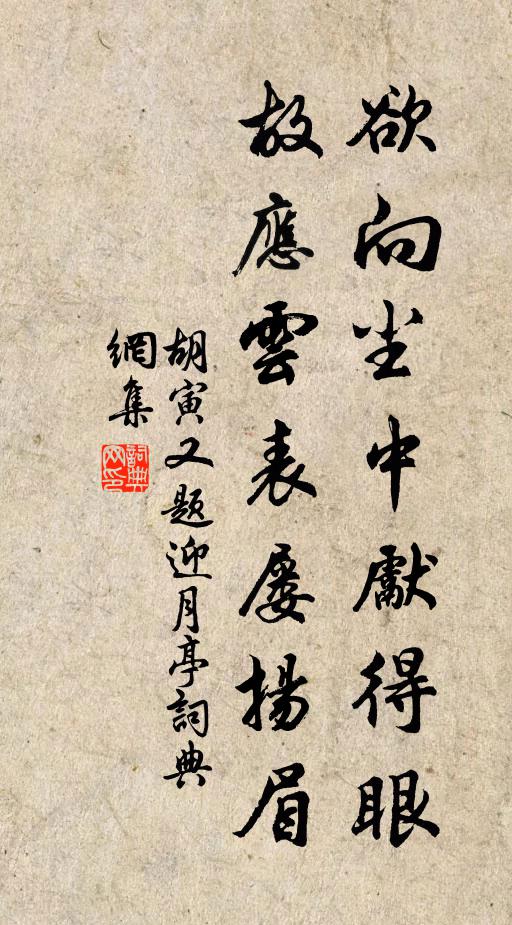 欲向尘中獻得眼
故應雲表屢揚眉
胡寅又題迎月亭詞典
網集
詞典網印